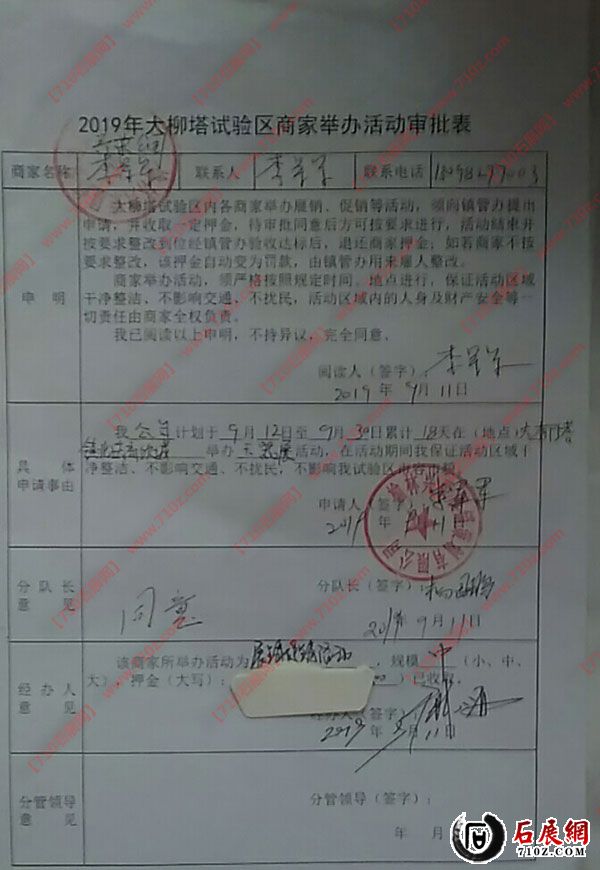 2019年大柳塔试验区商家举办活动审批表
商家名称
联系人
联系电话
申明
大柳塔试验区内各商家举办展销、促销等活动，须向镇管办提出
申请，并收取一定押金，待审批同意后方可按要求进行，活动结束并
按要求整改到位经镇管办验收达标后，退还商家押金；如若商家不按
要求整改，该押金自动变为罚款，由镇管办用来雇人整改。
商家举办活动，须严格按照规定时间、地点进行，保证活动区域
干净整洁、不影响交通、不扰民，活动区域内的人身及财产安全等一
切责任由商家全权负责。
我已阅读以上申明，不持异议，完全同意。
阅读人（签字）：
2019年9月11日
具体
申请事由
我公司计划于9月12日至9月30日累计18天在（地点）大柳塔
举办玉器展活动，在活动期间我保证活动区域干
净整洁、不影响交通、不扰民，不影响我试验区市容市貌。
申请人（签字）
2019年9月11日
分队长
意见
同意
分队长（签字）：
2019年9月11日
经办人
意见
该商家所举办活动为展销促销活动，规模中（小、中、
大），押金（大写）： ）已收
经办人（签字）：
2019年9月11日
分管领导
意见
分管领导（签字）：
年 月
石展網
7102.com
【710石展网】www.710z.com